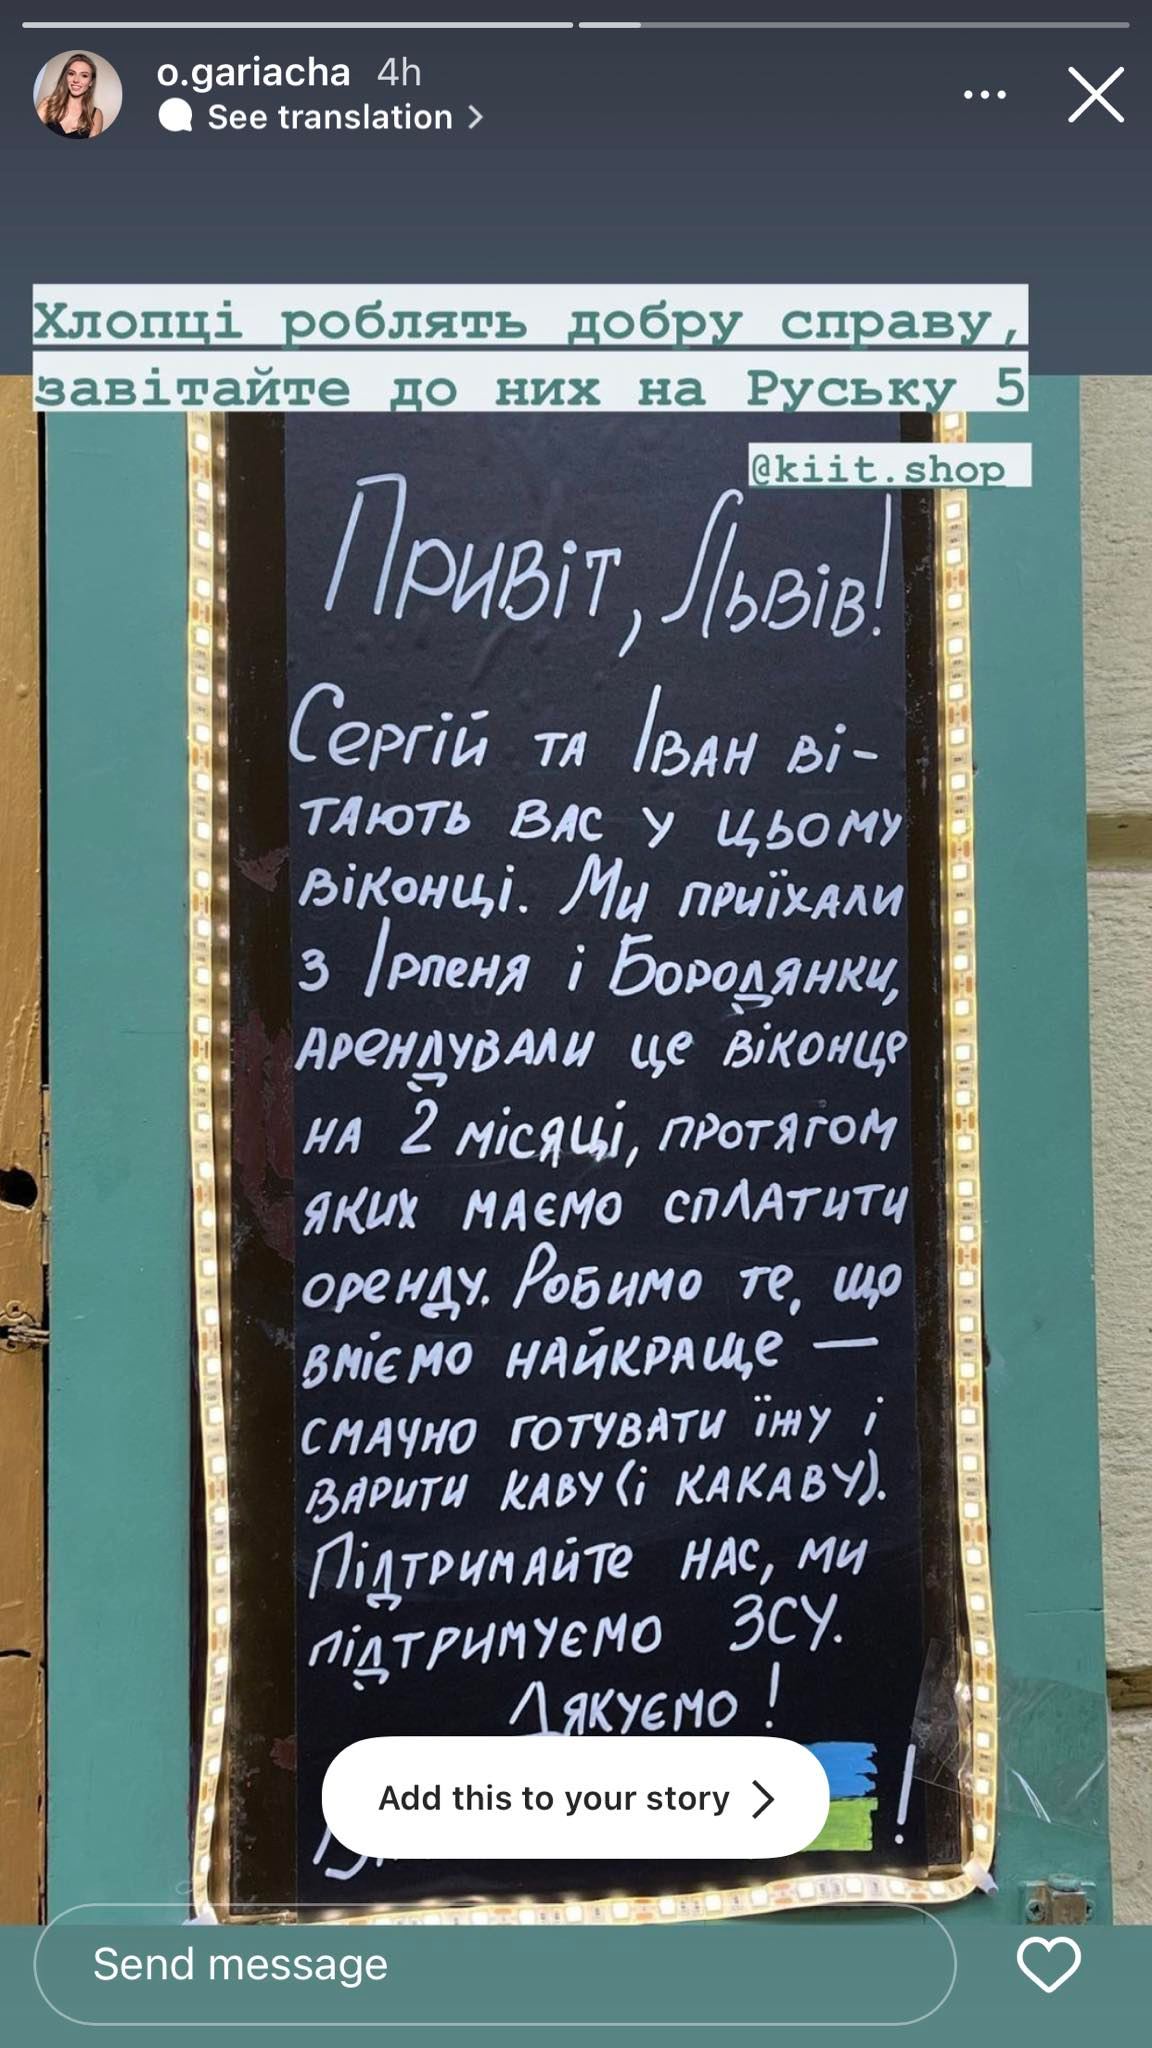 o.gariacha 4h
See translation
Хлопці роблять добру справу,
завітайте до них на Руську 5
@kiit.shop
Привіт, Львів!
Сергій та Іван ві-
тають вас у цьому
віконці. Ми приїхали
з Ірпеня і Бородянки,
арендували це віконце
на 2 місяці, протягом
яких маємо сплатити
оренду. Робимо те, що
вміємо найкраще —
смачно готувати їжу і
варити каву (і какаву).
Підтримайте нас, ми
підтримуємо ЗСУ.
Дякуємо!
Add this to your story
!
Send message